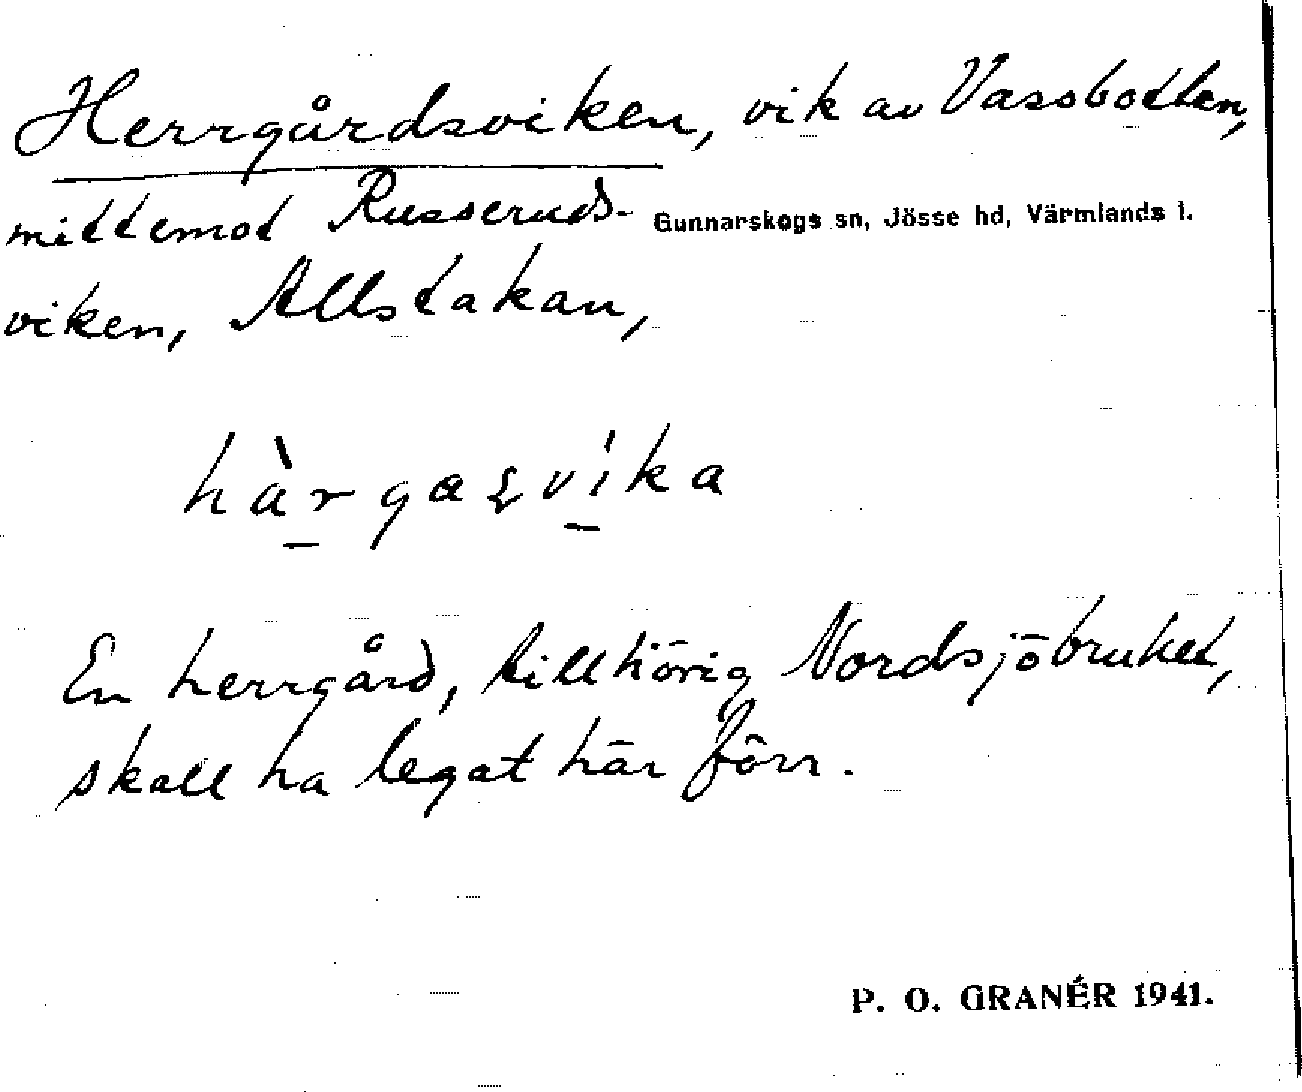 Herrgårdsviken, vik av Vassbotten,
mittemot Russeruds-
Gunnarskogs sn, Jösse hd, Värmlands l.
viken, Allstakan,
hàrgasvíka
En herrgård, tillhörig Nordsjöbruket,
skall ha legat här förr.
P. O. GRANÉR 1941.